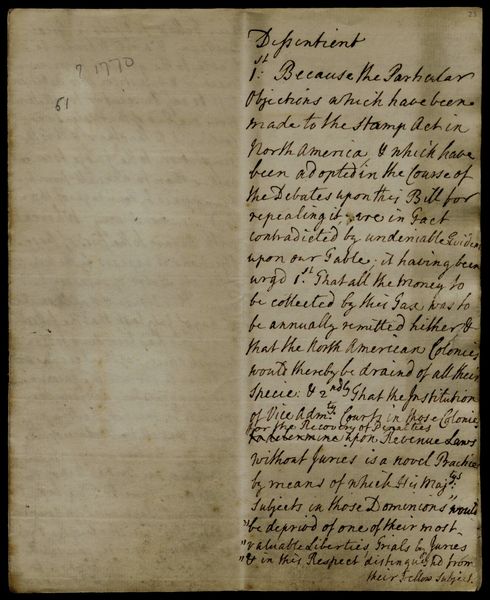 23
? 1770
61
Dissentient
1st: Because the Particular
Objections which have been
made to the Stamp Act in
North America, & which have
been adopted in the Course of
the Debates upon this Bill for
repealing it, are in Fact
contradicted by undeniable Eviden
upon our Table; it having been
urgd 1.st That all the money to
be collected by this Tax was to
be annually remitted hither &
that the North American Colonies
would thereby be draind of all their
Specie: & 2ndly That the Institution
of Vice Admty: Courts in those Colonie
for the Recovery of Penalties
upon Revenue Laws
without Juries is a novel Practice
by means of which His Majtys:
Subjects in those Dominions "would
"be deprivd of one of their most
"valuable Liberties Trials by Juries
"& in this Respect distinguishd from
their Fellow Subject.